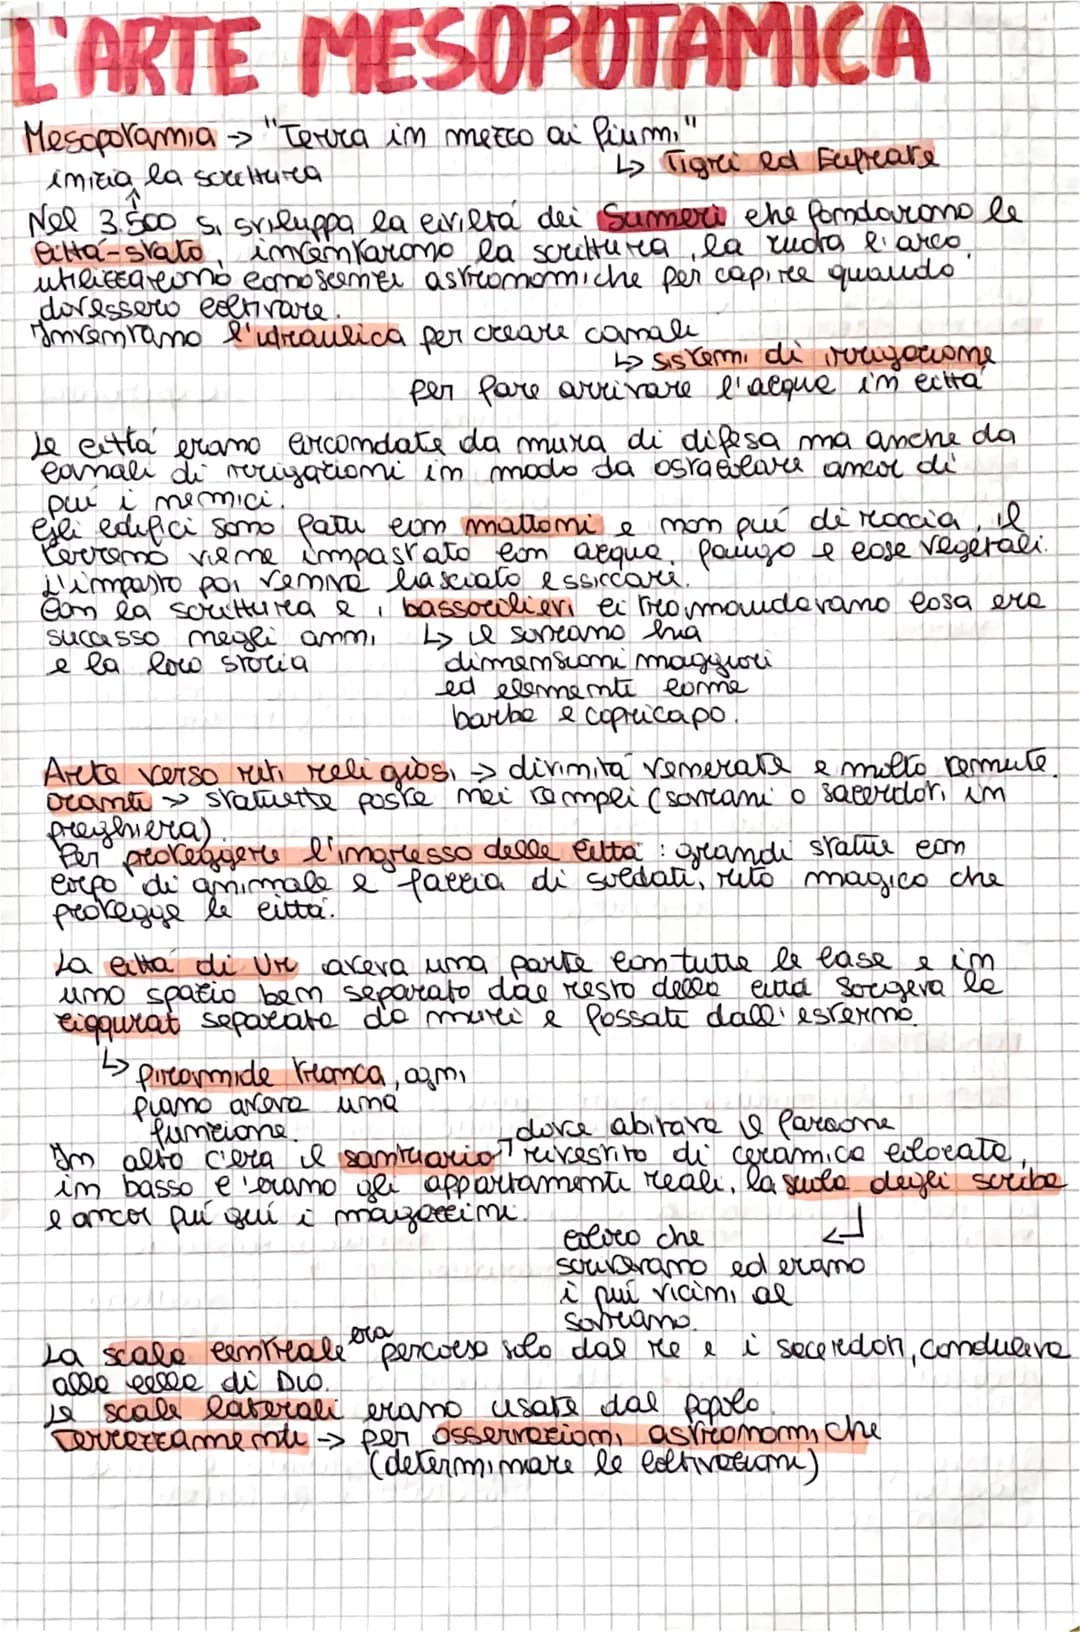 L'ARTE MESOPOTAMICA
Mesopotamia → "Terra in mezzo ai fiumi"
↳ Tigri ed Eufrate
inizia la scrittura
↑
Nel 3.500 si sviluppa la civiltá dei Sumeri che fondarono le
cittá-stato, inventarono la scrittura, la ruota l'arco,
utilizzarono conoscenze astronomiche per capire quando
dovessero coltivare.
Inventano l'idraulica per creare canali
↳ sistemi di irrigazione
per fare arrivare l'acque in cittá
Le cittá erano circondate da mura di difesa ma anche da
canali di irrigazioni in modo da ostacolare ancor di
piú i nemici.
Gli edifici sono fatti con mattoni e non piú di roccia, il
terreno viene impastato con acqua, fango e cose vegetali.
L'impasto poi veniva lasciato essiccare.
Con la scrittura e i bassorilievi ci tromandavano cosa era
successo negli anni ↳ il sovrano ha
e la loro storia dimensioni maggiori
ed elementi come
barba e copricapo.
Arte verso riti religiosi → divinitá venerate e molto temute.
Oranti → statuette poste nei tempei (sovrani o sacerdoti in
preghiera).
Per proteggere l'ingresso delle cittá : grandi statue con
corpo di animale e faccia di soldati, rito magico che
protegge le cittá.
La cittá di Ur aveva una parte con tutte le case e in
uno spazio ben separato dal resto della cittá sorgeva la
ziqqurat separata da muri e fossati dall'esterno.
↳ piramide tronca, ogni
piano aveva una
funzione.
dove abitava il faraone
In alto c'era il santuario rivestito di ceramica colorata,
in basso c'erano gli appartamenti reali, la scuola degli scriba
e ancor piú giú i magazzini.
coloro che ↲
scrivevano ed erano
i piú vicini al
sovrano.
La scala centrale era percorsa solo dal re e i sacerdoti, conduceva
alla cella di Dio.
Le scale laterali erano usate dal popolo.
Terrazzamenti → per osservazioni astronomiche
(determinare le coltivazioni)